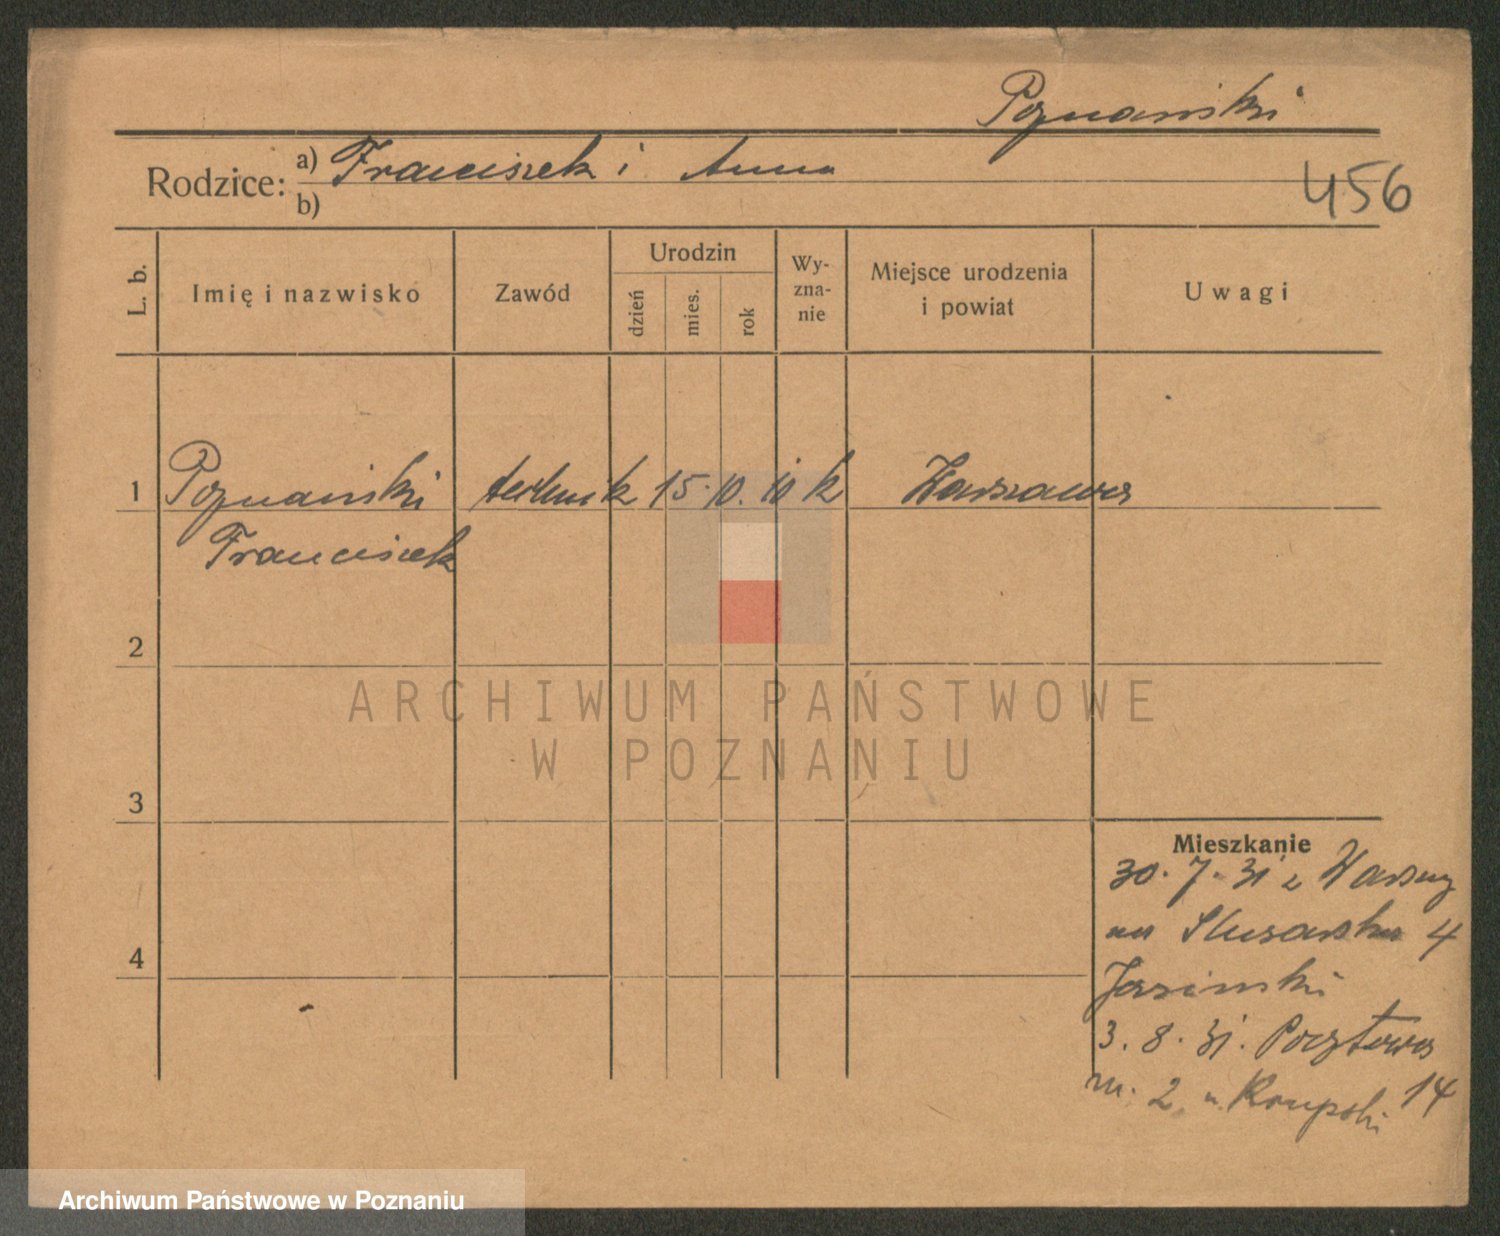 Poznański
Rodzice: a) Franciszek i Anna
b)
456
L. b.
Imię i nazwisko
Zawód
Urodzin
dzień
mies.
rok
Wy-
zna-
nie
Miejsce urodzenia
i powiat
Uwagi
1 Poznański technik 15. 10. 10 k Warszawa
Franciszek
2
3
4
Mieszkanie
30. 7. 31 z Warszawy
na Slusarska 4
Jasinski
3. 8. 31. Pocztowa
m. 2 u 14
ARCHIWUM PAŃSTWOWE
W POZNANIU
Archiwum Państwowe w Poznaniu